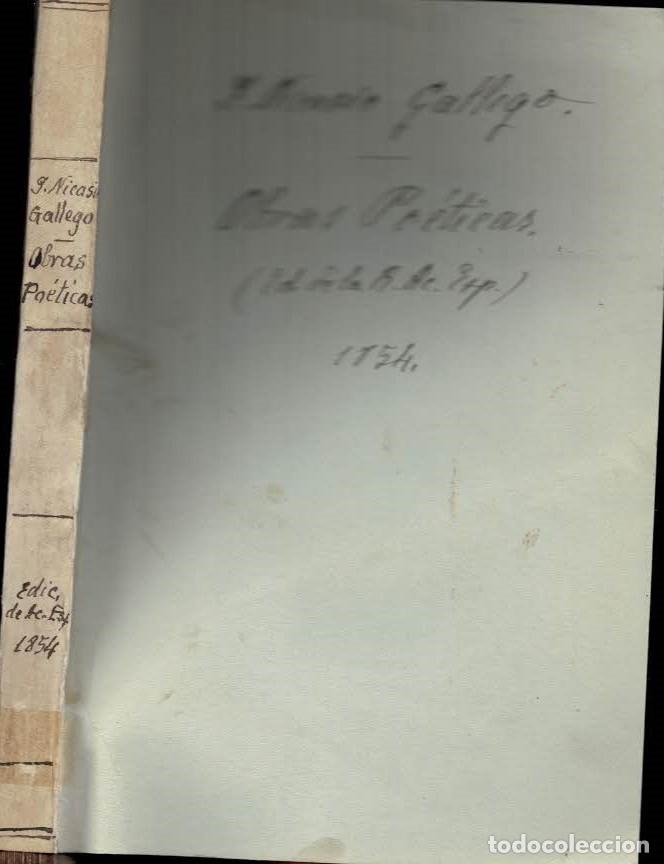 J. Nicasio
Gallego
Obras
Poéticas
Edic.
de Ac. Esp
1854
J. Nicasio Gallego.
Obras Poéticas.
(Ed. de la R. Ac. Esp.)
1854.
todocoleccion